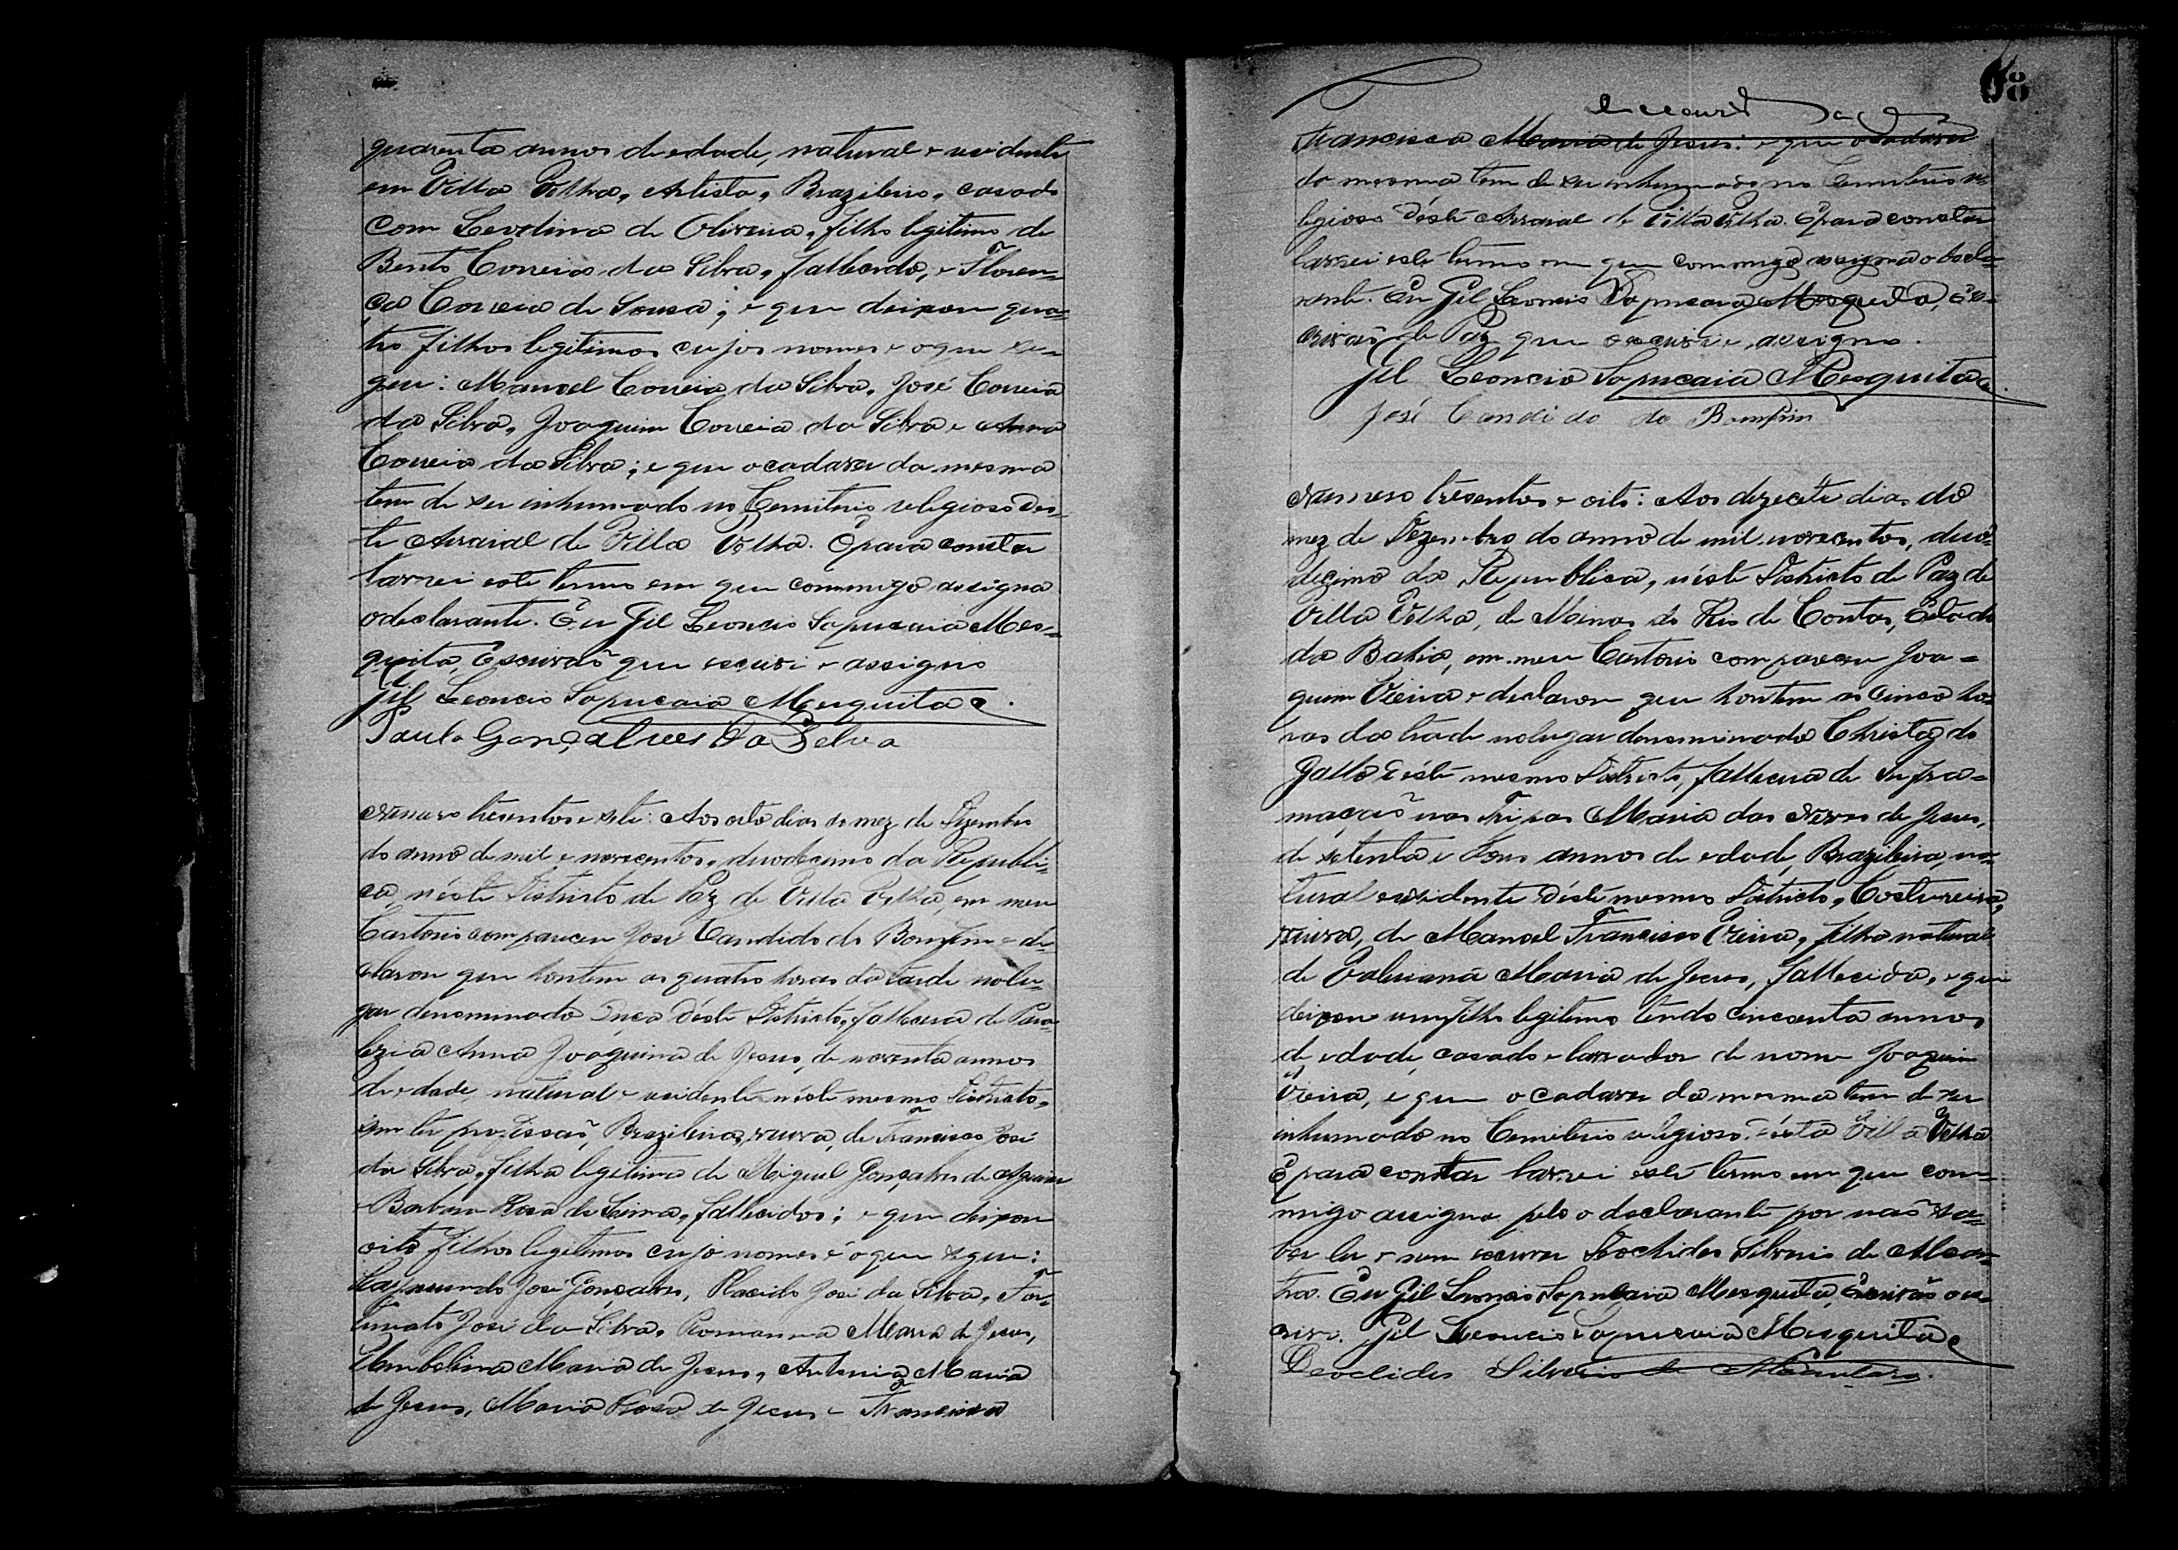 quarenta annos de edade, natural e residente
em Villa Velha, Artista, Brazileiro, casado
com Levolina de Oliveira, filho legitimo de
Bento Correia da Silva, fallecido, e Floren-
ca Correia de Sousa; e que deixou qua-
tro filhos legitimos cujos nomes e o que se-
gue: Manoel Correia da Silva, José Correia
da Silva, Joaquim Correia da Silva e Anna
Correia da Silva; e que o cadaver do mesmo
tem de ser inhumado no Cemiterio religioso des-
te Arraial de Villa Velha. E para constar
lavrei este termo em que commigo assigna
o declarante. Eu Gil Leoncio Sapucaia Mes-
quita, Escrivaõ que escrivi e assigno
Gil Leoncio Sapucaia Mesquita
Paulo Gonçalves da Silva
Numero tresentos e sete: Aos oito dias do mez de Dezembro
do anno de mil e novecentos, duodecimo da Republi-
ca, néste Districto de Paz de Villa Velha, em meu
Cartorio compareceu José Candido do Bomfim e de-
clarou que hontem as quatro horas da tarde no lu-
gar denominado déste Districto, fallecera de Para-
lezia Anna Joaquina de Jesus, de noventa annos
de edade, natural e residente néste mesmo Districto,
sem ter profissaõ, Brazileira, viuva, de Francisco José
da Silva, filha legitima de Miguel Gonçalves de Aguiar
e Barbara Rosa de Lima, fallecidos; e que deixou
oito filhos legitimos cujo nomes é o que segue:
Raymundo José Gonçalves, Placido José da Silva, For-
tunato José da Silva, Romanna Maria de Jesus,
Umbelina Maria de Jesus, Antonia Maria
de Jesus, Maria Rosa de Jesus e Francisca
68
Francisca Maria de Jesus: e que o cadaver
da mesma tem de ser inhumado no Cemiterio re-
ligioso déste Arraial de Villa Velha. E para constar
lavrei este termo em que commigo assigna o decla-
rante. Eu Gil Leoncio Sapucaia Mesquita, Es-
crivaõ de Paz que escrivi e assigno.
Gil Leoncio Sapucaia Mesquita
José Candido do Bomfim
Numero tresentos e oito: Aos dezecete dias do
mez de Dezembro do anno de mil novecentos, duo-
decimo da Republica, néste Districto de Paz de
Villa Velha, de Minas do Rio de Contas, Estado
da Bahia, em meu Cartorio compareceu Joa-
quim Vieira e declarou que hontem as cinco ho-
ras da tarde no lugar denominado Christaz do
Gallo déste mesmo Districto, fallecera de Infra-
maçaõ nas Tripas Maria das Neves de Jesus,
de setenta e dous annos de edade, Brazileira, na-
tural e residente déste mesmo Districto, Costureira,
viuva, de Manoel Francisco Vieira, filha natural
de Maria de Jesus, fallecida, e que
deixou um filho legitimo tendo cincoenta annos
de edade, casado e lavrador de nome Joaquim
Vieira, e que o cadaver da mesma tem de ser
inhumado no Cemiterio religioso désta Villa Velha
E para constar lavrei este termo em que com-
migo assigna pelo o declarante por naõ sa-
ber ler e nem escrever Deoclides Silverio de Alcan-
tra. Eu Gil Leoncio Sapucaia Mesquita, Escrivaõ o es-
crivi. Gil Leoncio Sapucaia Mesquita
Deoclides Silverio de Alcantara.